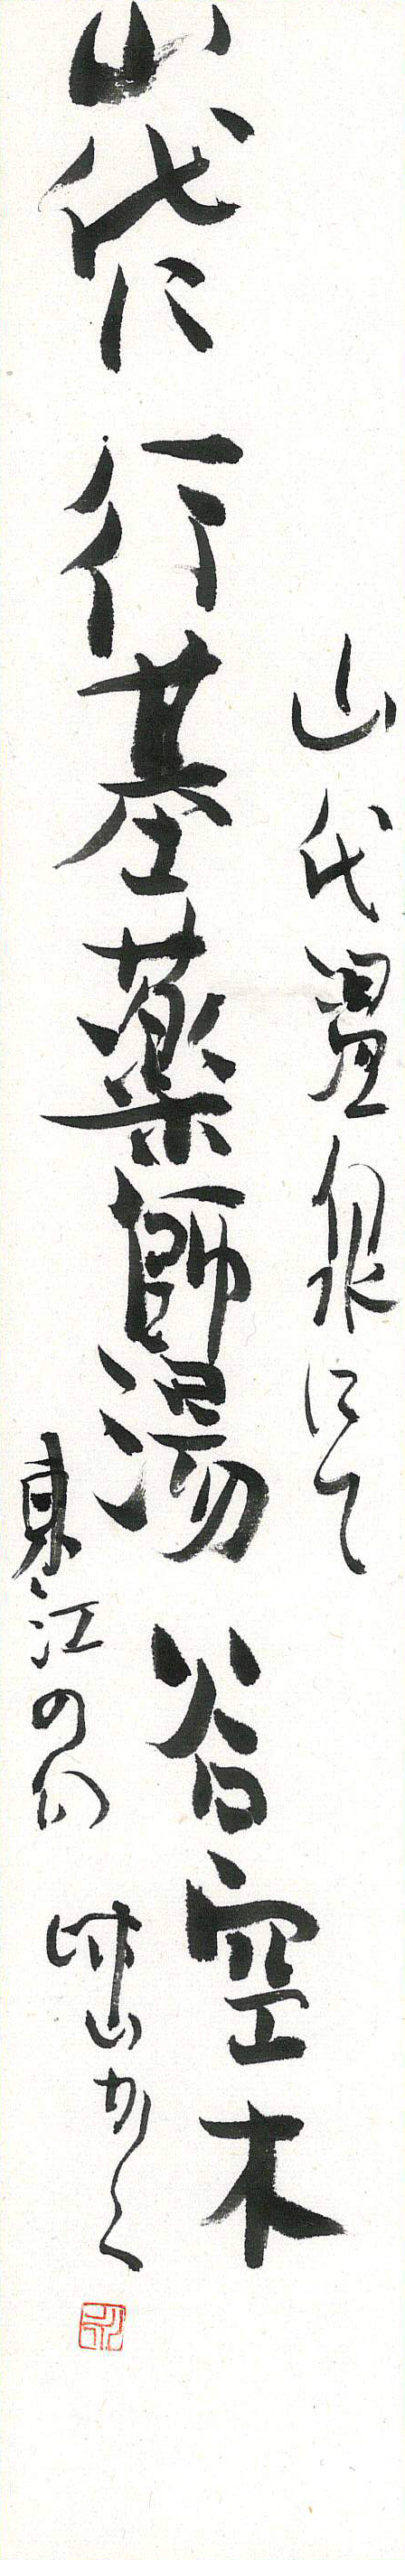 山代温泉にて
山代に行基薬師湯谷空木
東江の句
かく